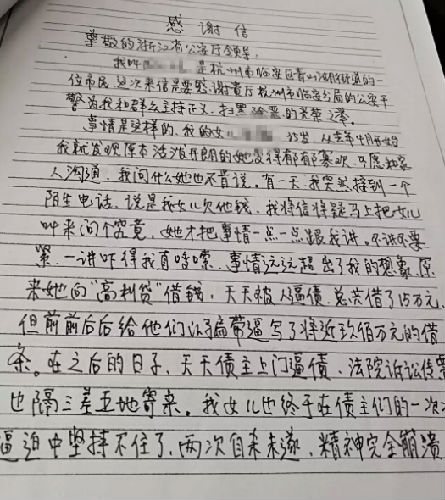 感谢信
尊敬的浙江省公安厅领导，
我叫 是杭州市临安区青山湖街道的一
位市民，这次来信是要感谢贵厅杭州市临安分局的公安干
警为我和群众主持正义，扫黑除恶的英荣之举。
事情是这样的，我的女儿 岁，从去年4月开始
我就发现原本活泼开朗的她变得郁郁寡欢，不愿和家
人沟通，我问什么她也不肯说。有一天我突然接到一个
陌生电话，说是我女儿欠他钱，我将信将疑马上把女儿
叫来问个究竟，她才把事情一点一点跟我讲。不讲不要
紧，一讲吓得我直哆嗦，事情远远超出了我的想象，原
来她向“高利贷”借钱，天天被人逼债，总共借了15万元，
但前前后后给他们以骗带逼写了将近玖佰万元的借
条。在之后的日子，天天债主上门逼债，法院诉讼传票
也隔三差五地寄来。我女儿也终于在债主们的一次次
逼迫中坚持不住了，两次自杀未遂，精神完全崩溃